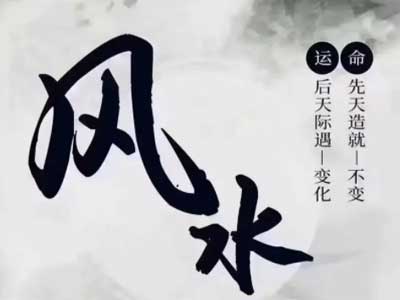 风水
命 先天造就—不变
运 后天际遇—变化